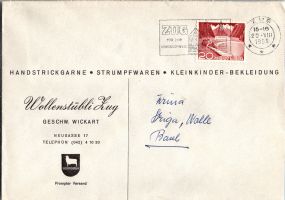 ZUG
ZUG
15-16
20.VIII
1956
20
HANDSTRICKGARNE • STRUMPFWAREN • KLEINKINDER-BEKLEIDUNG
Wollenstübli Zug
GESCHW. WICKART
NEUGASSE 17
TELEPHON (042) 4 10 20
Prompter Versand
Firma
Halle
Basel